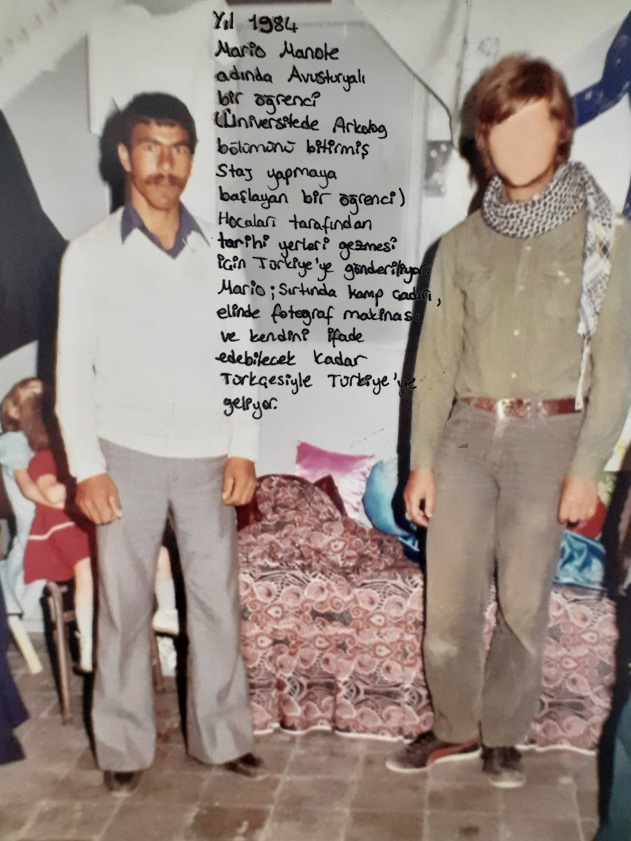 Yıl 1984
Mario Manote
adında Avusturyalı
bir öğrenci
(Üniversitede Arkolog
bölümünü bitirmiş
Staj yapmaya
başlayan bir öğrenci)
Hocaları tarafından
tarihi yerleri gezmesi
için Türkiye'ye gönderiliyor.
Mario; Sırtında kamp çadırı,
elinde fotoğraf makinası
ve kendini ifade
edebilecek kadar
Türkçesiyle Türkiye'ye
geliyor.